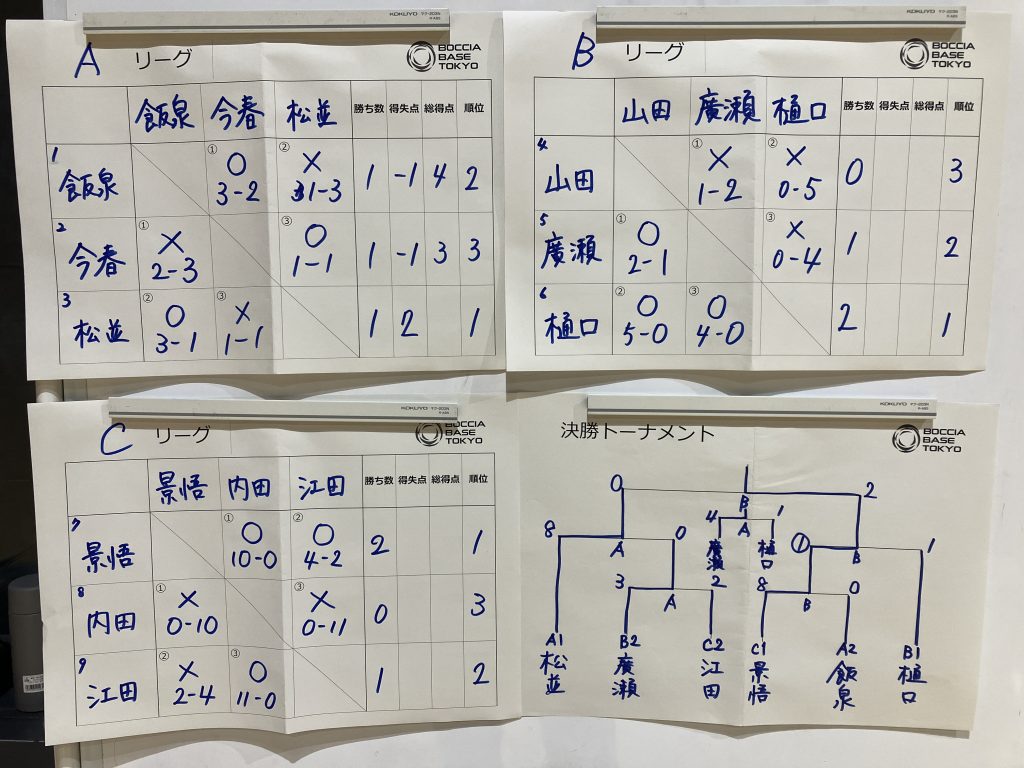 KOKUYO マク-203N
F-A85
A リーグ
BOCCIA
BASE
TOKYO
飯泉 今春 松並 勝ち数 得失点 総得点 順位
1 飯泉 ① ○ 3-2 ② × 1-3 1 -1 4 2
2 今春 ① × 2-3 ③ ○ 1-1 1 -1 3 3
3 松並 ② ○ 3-1 ③ × 1-1 1 2 1
KOKUYO マク-203N
B リーグ
BOCCIA
BASE
TOKYO
山田 廣瀬 樋口 勝ち数 得失点 総得点 順位
4 山田 ① × 1-2 ② × 0-5 0 3
5 廣瀬 ① ○ 2-1 ③ × 0-4 1 2
6 樋口 ② ○ 5-0 ③ ○ 4-0 2 1
KOKUYO マク-203N
C リーグ
BOCCIA
BASE
TOKYO
景悟 内田 江田 勝ち数 得失点 総得点 順位
7 景悟 ① ○ 10-0 ② ○ 4-2 2 1
8 内田 ① × 0-10 ③ × 0-11 0 3
9 江田 ② × 2-4 ③ ○ 11-0 1 2
KOKUYO マク-203N
決勝トーナメント
BOCCIA
BASE
TOKYO
0 B 2
8 A 0 4 A 1 ① B 1
廣瀬 樋口
3 A 2 8 B 0
A1 B2 C2 C1 A2 B1
松並 廣瀬 江田 景悟 飯泉 樋口